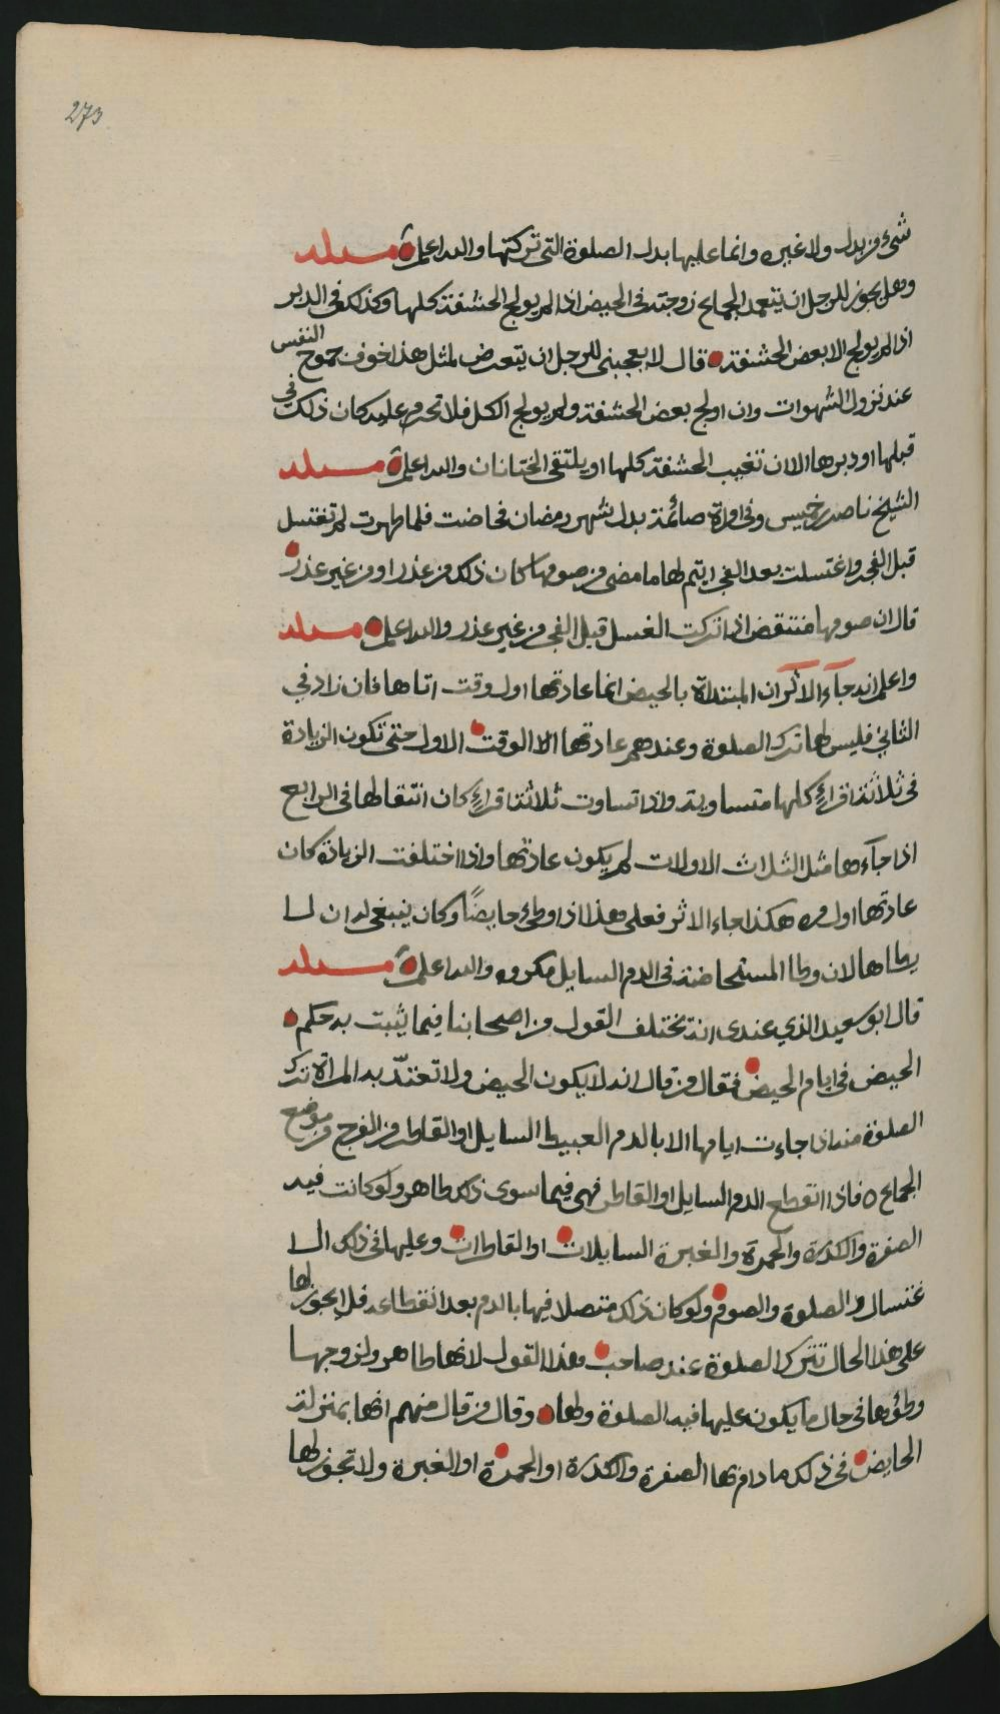 273
شيء من بدل ولا غيره وانما عليها بدل الصلوة التي تركتها والله اعلم مسئلة
وهل يجوز للرجل ان يتعمد لجماع زوجته في الحيض اذا لم يولج الحشفة كلها وكذلك في الدبر
اذا لم يولج الا بعض الحشفة قال لا يعجبني للرجل ان يتعرض لمثل هذا خوف جموح النفس
عند نزول الشهوات وان اولج بعض الحشفة ولم يولج الكل فلا تحرم عليه كان ذلك في
قبلها او دبرها الا ان تغيب الحشفة كلها او يلتقي الختانان والله اعلم مسئلة
الشيخ ناصر بن خميس وفي امراة صائمة بدل شهر رمضان فحاضت فلما طهرت لم تغتسل
قبل الفجر واغتسلت بعد الفجر ايتم لها ما مضى من صومها كان ذلك من عذر او من غير عذر
قال ان صومها منتقض اذا تركت الغسل قبل الفجر من غير عذر والله اعلم مسئلة
واعلم انه جآء الاثر ان المبتداة بالحيض انما عادتها اول وقت اتاها فان زاد في
الثاني فليس لها ترك الصلوة وعندهم عادتها الا الوقت الاول حتى تكون الزيادة
في ثلاثة اقراء كلها متساوية واذا تساوت ثلاثة اقراء كان انتقالها في الرابع
اذا جآءها مثل الثلاث الاولات لم يكون عادتها واذا اختلفت الزيادة كان
عادتها اول مره هكذا جاء الاثر فعلى هذا اذا وطئ حايضًا وكان ينبغي له ان لا
يطاها لان وطا المستحاضة في الدم السايل مكروه والله اعلم مسئلة
قال ابو سعيد الذي عندي انه يختلف القول من اصحابنا فيما يثبت به حكم
الحيض في ايام الحيض فقال من قال انه لا يكون الحيض ولا تعتدّ به المراة ترك
الصلوة منه اذا جاءت ايامها الا بالدم العبيط السايل او القاطر من الفرج من موضع
الجماع ٥ فاذا انقطع الدم السايل او القاطر فهي فيما سوى ذلك طاهر ولو كانت فيه
الصفرة والكدرة والحمرة والغبرة السايلات او القاطرات وعليها في ذلك الا
غتسال والصلوة والصوم ولو كان ذلك متصلا فيها بالدم بعد انقطاعه فلا يجوز لها
على هذا الحال تترك الصلوة عند صاحب هذا القول لانها طاهر ولزوجها
وطؤها في حال ما يكون عليها فيه الصلوة ولها وقال من قال منهم انها بمنزلة
الحايض في ذلك ما دام بها الصفرة والكدرة او الحمرة او الغبرة ولا تجوز لها